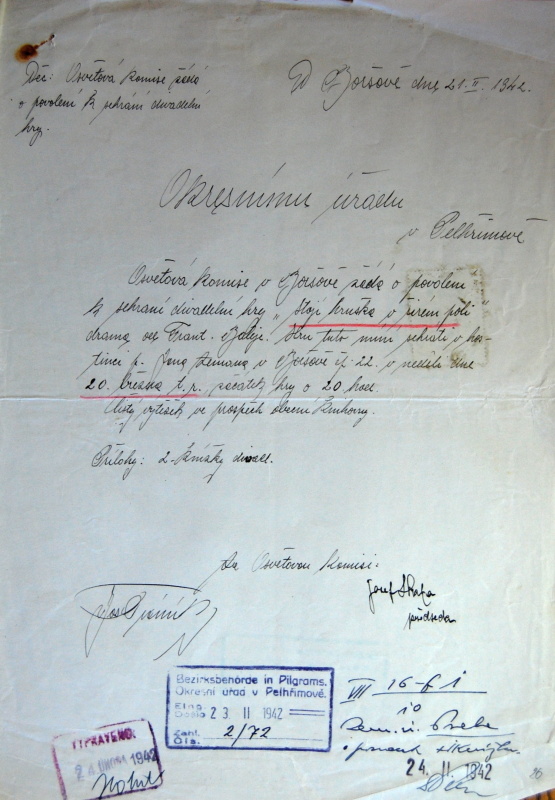 Věc: Osvětová komise žádá
o povolení k sehrání divadelní
hry.
dne 21.II.1942.
Okresnímu úřadu
v Pelhřimově
Osvětová komise v žádá o povolení
k sehrání divadelní hry „Stojí hruška v širém poli“
drama od Frant. Hru tuto míní sehráti v hos-
tinci p. Zemana v čp. 22. v neděli dne
20. března t. r. začátek hry o 20 hod.
Čistý výtěžek ve prospěch obecní knihovny.
Přílohy: 2 knížky divad.
Za Osvětovou komisi:
Josef
předseda
Jos
Bezirksbehörde in Pilgrams.
Okresní úřad v Pelhřimově.
Eing.
Došlo 23 II 1942
Zahl.
Čís. 2/72
VII 16-61
10
24. II 1942
VYPRAVENO:
24 ÚNORA 1942